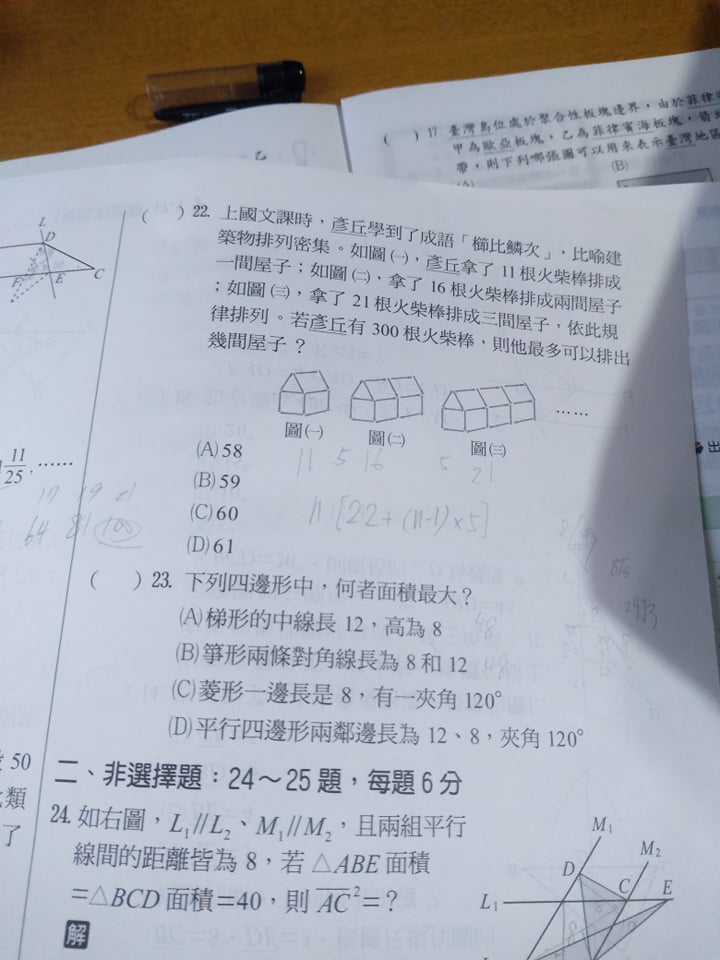 ( ) 17 臺灣島位處於聚合性板塊邊界,由於菲律
甲為歐亞板塊,乙為菲律賓海板塊,箭
帶,則下列哪張圖可以用來表示臺灣地區
(A)
(B)
乙
( ) 22. 上國文課時,彥丘學到了成語「櫛比鱗次」,比喻建
築物排列密集。如圖㈠,彥丘拿了 11 根火柴棒排成
一間屋子;如圖㈡,拿了 16 根火柴棒排成兩間屋子
;如圖㈢,拿了 21 根火柴棒排成三間屋子,依此規
律排列。若彥丘有 300 根火柴棒,則他最多可以排出
幾間屋子?
圖㈠ 圖㈡ 圖㈢ ……
(A) 58
(B) 59
(C) 60
(D) 61
11 5 16 5 21
n[22+(n-1)×5]
( ) 23. 下列四邊形中,何者面積最大?
(A) 梯形的中線長 12,高為 8
(B) 箏形兩條對角線長為 8 和 12
48
(C) 菱形一邊長是 8,有一夾角 120°
(D) 平行四邊形兩鄰邊長為 12、8,夾角 120°
二、非選擇題:24~25 題,每題 6 分
24. 如右圖,L₁//L₂、M₁//M₂,且兩組平行
線間的距離皆為 8,若 △ABE 面積
=△BCD 面積=40,則 AC²=?
解
M₁
M₂
D
C
E
L₁
L
D
F
E
C
11/25,……
17 19 21
64 81 100
50
類
了
出